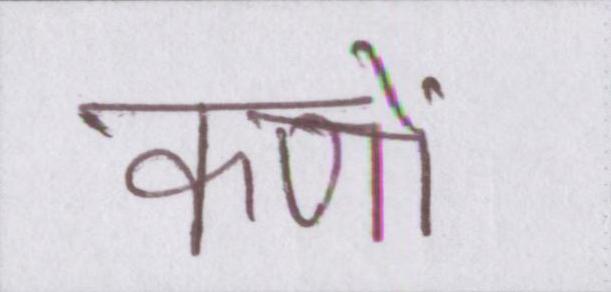 कणों